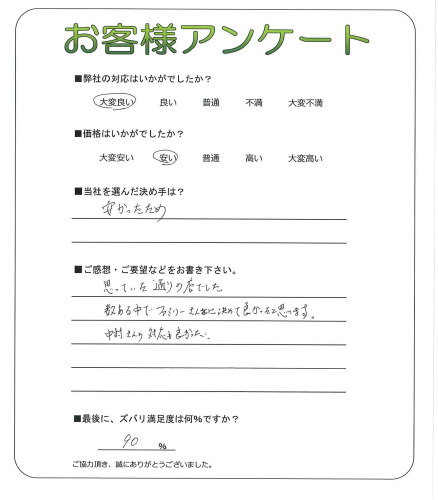 お客様アンケート
■弊社の対応はいかがでしたか？
大変良い 良い 普通 不満 大変不満
■価格はいかがでしたか？
大変安い 安い 普通 高い 大変高い
■当社を選んだ決め手は？
安かったため
■ご感想・ご要望などをお書き下さい。
思っていた通りの店でした
数ある中でファミリーさんに決めて良かったと思います。
中村さんの対応も良かった。
■最後に、ズバリ満足度は何％ですか？
90 ％
ご協力頂き、誠にありがとうございました。